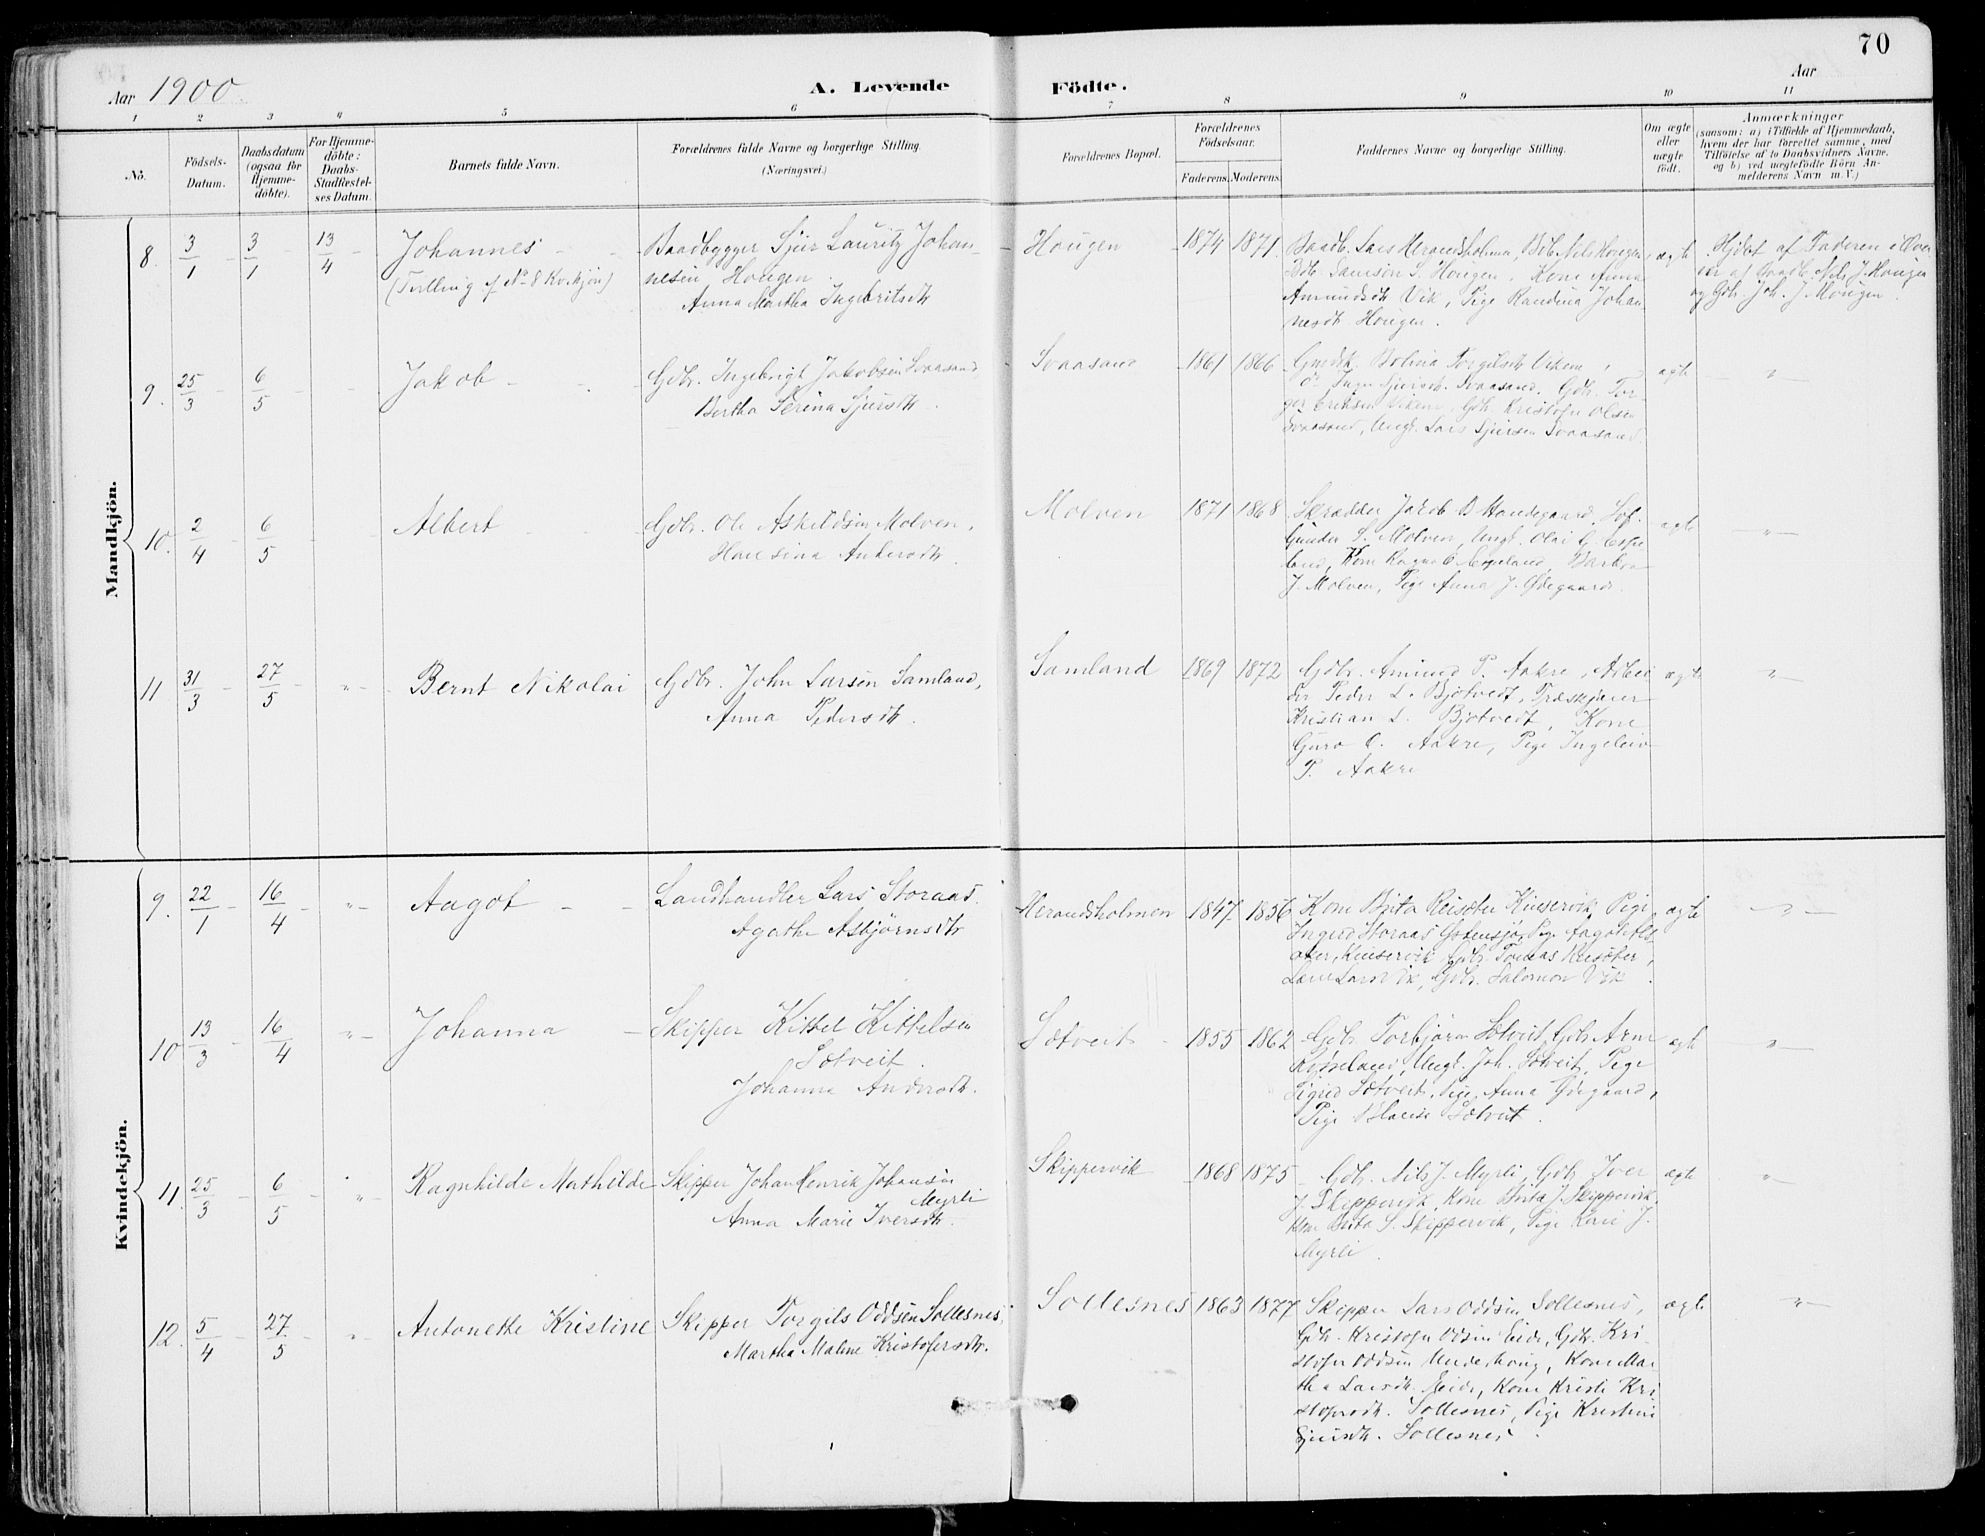 70
Aar 1900.
A. Levende
Födte.
Aar
1 2 3 4 5 6 7 8 9 10 11
No.
Födsels-Datum.
Daabsdatum (ogsaa for Hjemme-döbte).
For Hjemme-döbte: Daabs-Stadfæstel-ses Datum.
Barnets fulde Navn.
Forældrenes fulde Navne og borgerlige Stilling.
(Næringsvei.)
Forældrenes Bopæl.
Forældrenes Födselsaar.
Faderens. Moderens.
Faddernes Navne og borgerlige Stilling.
Om ægte eller uægte födt.
Anmærkninger
(saasom: a) i Tilfælde af Hjemmedaab,
hvem der har forrettet samme, med
Tilföielse af to Daabsvidners Navne,
og b) ved uægtefödte Börn An-
melderens Navn m. V.)
Mandkjön.
8. 3/1 3/1 13/4 Johannes
(Tvilling af No 8 Kvkjön)
Baadbygger Sjur Lauritz Johan-
nesen Hougen.
Anna Martha Ingebritsdtr
Hougen 1874 1871.
Baadb. Lars Herandsholmen, Bdb. Nils Hougen,
Bdb. Samson S. Hougen, Kone Anna
Amundsdtr Vik, Pige Randina Johan
nesdtr. Hougen.
ægte
Hjdøbt af Faderen i Overvær af Baadb. Nils J. Hougen
og Gdb. Joh. J. Hougen.
9. 25/3 6/5 Jakob
Gdbr. Ingebrigt Jakobsen Svaasand
Bertha Serina Sjursdtr.
Svaasand 1861 1866
Bolina Torgilsdtr Viken,
Inga Sjursdtr. Svaasand, Gdb. Tor-
ger Eriksen Viken, Gdb. Kristofer Olsen
Svaasand, Ungk. Lars Sjursen Svaasand.
ægte "
10. 2/4 6/5 Albert
Gdbr. Ole Askildsen Molven,
Hansina Andersdtr.
Molven 1871 1868
Skrædder Jakob
Gunder S. Molven, Ungk. Olai G. Espe
land, Kone Ragna O. Espeland, Barbra
J. Molven, Pige Anna J. Ødegaard.
ægte "
11 31/3 27/5 " Bernt Nikolai
Gdbr. John Larsen Samland,
Anna Pedersdtr.
Samland 1869 1872
Gdbr. Amund P. Aakre, Arbei
der Peder L. Bjotvedt, Træskjærer
Kristian L. Bjotvedt, Kone
Guro O. Aakre, Pige Ingeleiv
P. Aakre
ægte "
Kvindekjön.
9. 22/1 16/4 " Aagot
Landhandler Lars Storaas.
Agathe Asbjørnsdtr
Herandsholmen 1847 1856
Kone Brita Reisæter Kinservik, Pige
Ingrid Storaas
Kinservik, Gdb. Tomas Reisæter,
Vik, Gdb. Salomon Vik.
ægte "
10 13/3 16/4 " Johanna
Skipper Kittel Kittelsen
Sætveit.
Johanna Andersdtr.
Sætveit 1855 1862
Gdb Torbjørn Sætveit, Gdb Arne
Ungk. Joh. Sætveit, Pige
Sigrid Sætveit, Pige Anna Ødegaard,
Pige Sætveit.
ægte "
11. 25/3 6/5 " Ragnhilde Mathilde
Skipper Johan Henrik Johansen
Myrli
Anna Marie Iversdtr.
Skippervik 1868 1875
Gdb. Nils J. Myrli, Gdb Iver
J. Skippervik, Kone Brita J. Skippervik,
Kone Brita S. Skippervik, Pige Kari J.
Myrli.
ægte "
12. 5/4 27/5 " Antonette Kristine
Skipper Torgils Oddsen Sollesnes,
Martha Maline Kristofersdtr.
Sollesnes 1863 1877
Skipper Lars Oddsen Sollesnes,
Gdb. Kristofer Odsen Eide, Gdb. Kri-
stofer Oddsen Underhoug, Kone Mar
tha Larsdtr. Eide, Kone Kristi Kri
stofersdtr. Sollesnes, Pige Kristine
Sjursdtr. Sollesnes.
ægte "